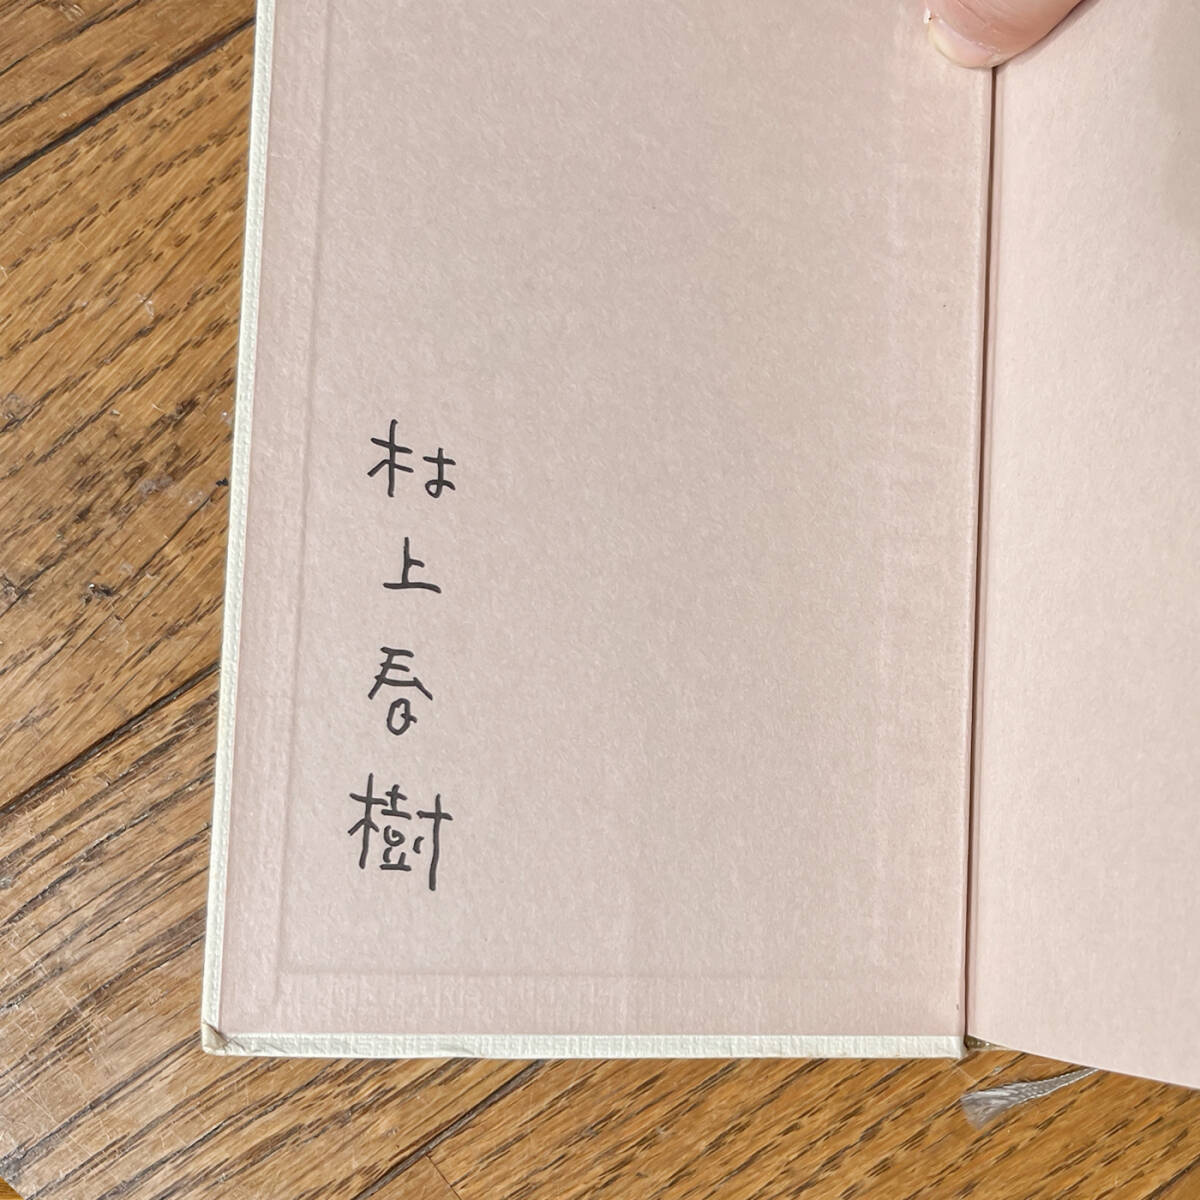 村上春樹